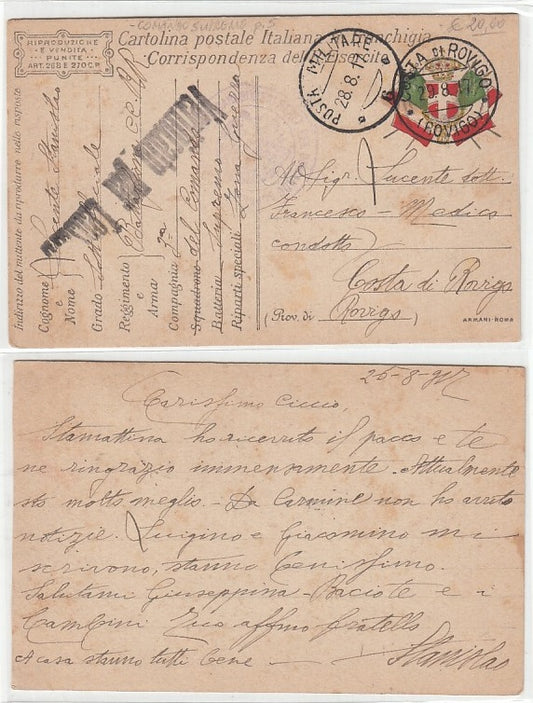 COMANDO SUPREMO p.5
€ 20,00
RIPRODUZIONE
E VENDITA
PUNITE
ART. 268 E 270 C.P.
Cartolina postale Italiana in franchigia
Corrispondenza dell'Esercito
POSTA MILITARE
28.8.17
COSTA DI ROVIGO
(ROVIGO)
Indirizzo del mittente da riprodurre nello risposte
Cognome e Nome Lucente Stanislao
Grado
Reggimento e Arma Battaglione CC.RR.
Compagnia 7a
Squadrone del Comando
Batteria Supremo
Riparti speciali Zona Guerra
Al Sigr. Lucente dott.
Francesco - Medico
condotto
Costa di Rovigo
(Prov. di Rovigo)
ARMANI-ROMA
25-8-917
Carissimo Ciccio,
Stamattina ho ricevuto il pacco e te
ne ringrazio immensamente. Attualmente
stò molto meglio. - Da Carmine non ho avuto
notizie. Luigino e Giacomino mi
scrivono, stanno benissimo.
Salutami Giuseppina - Baciote e i
bambini tuo affmo fratello
A casa stanno tutti bene - Stanislao